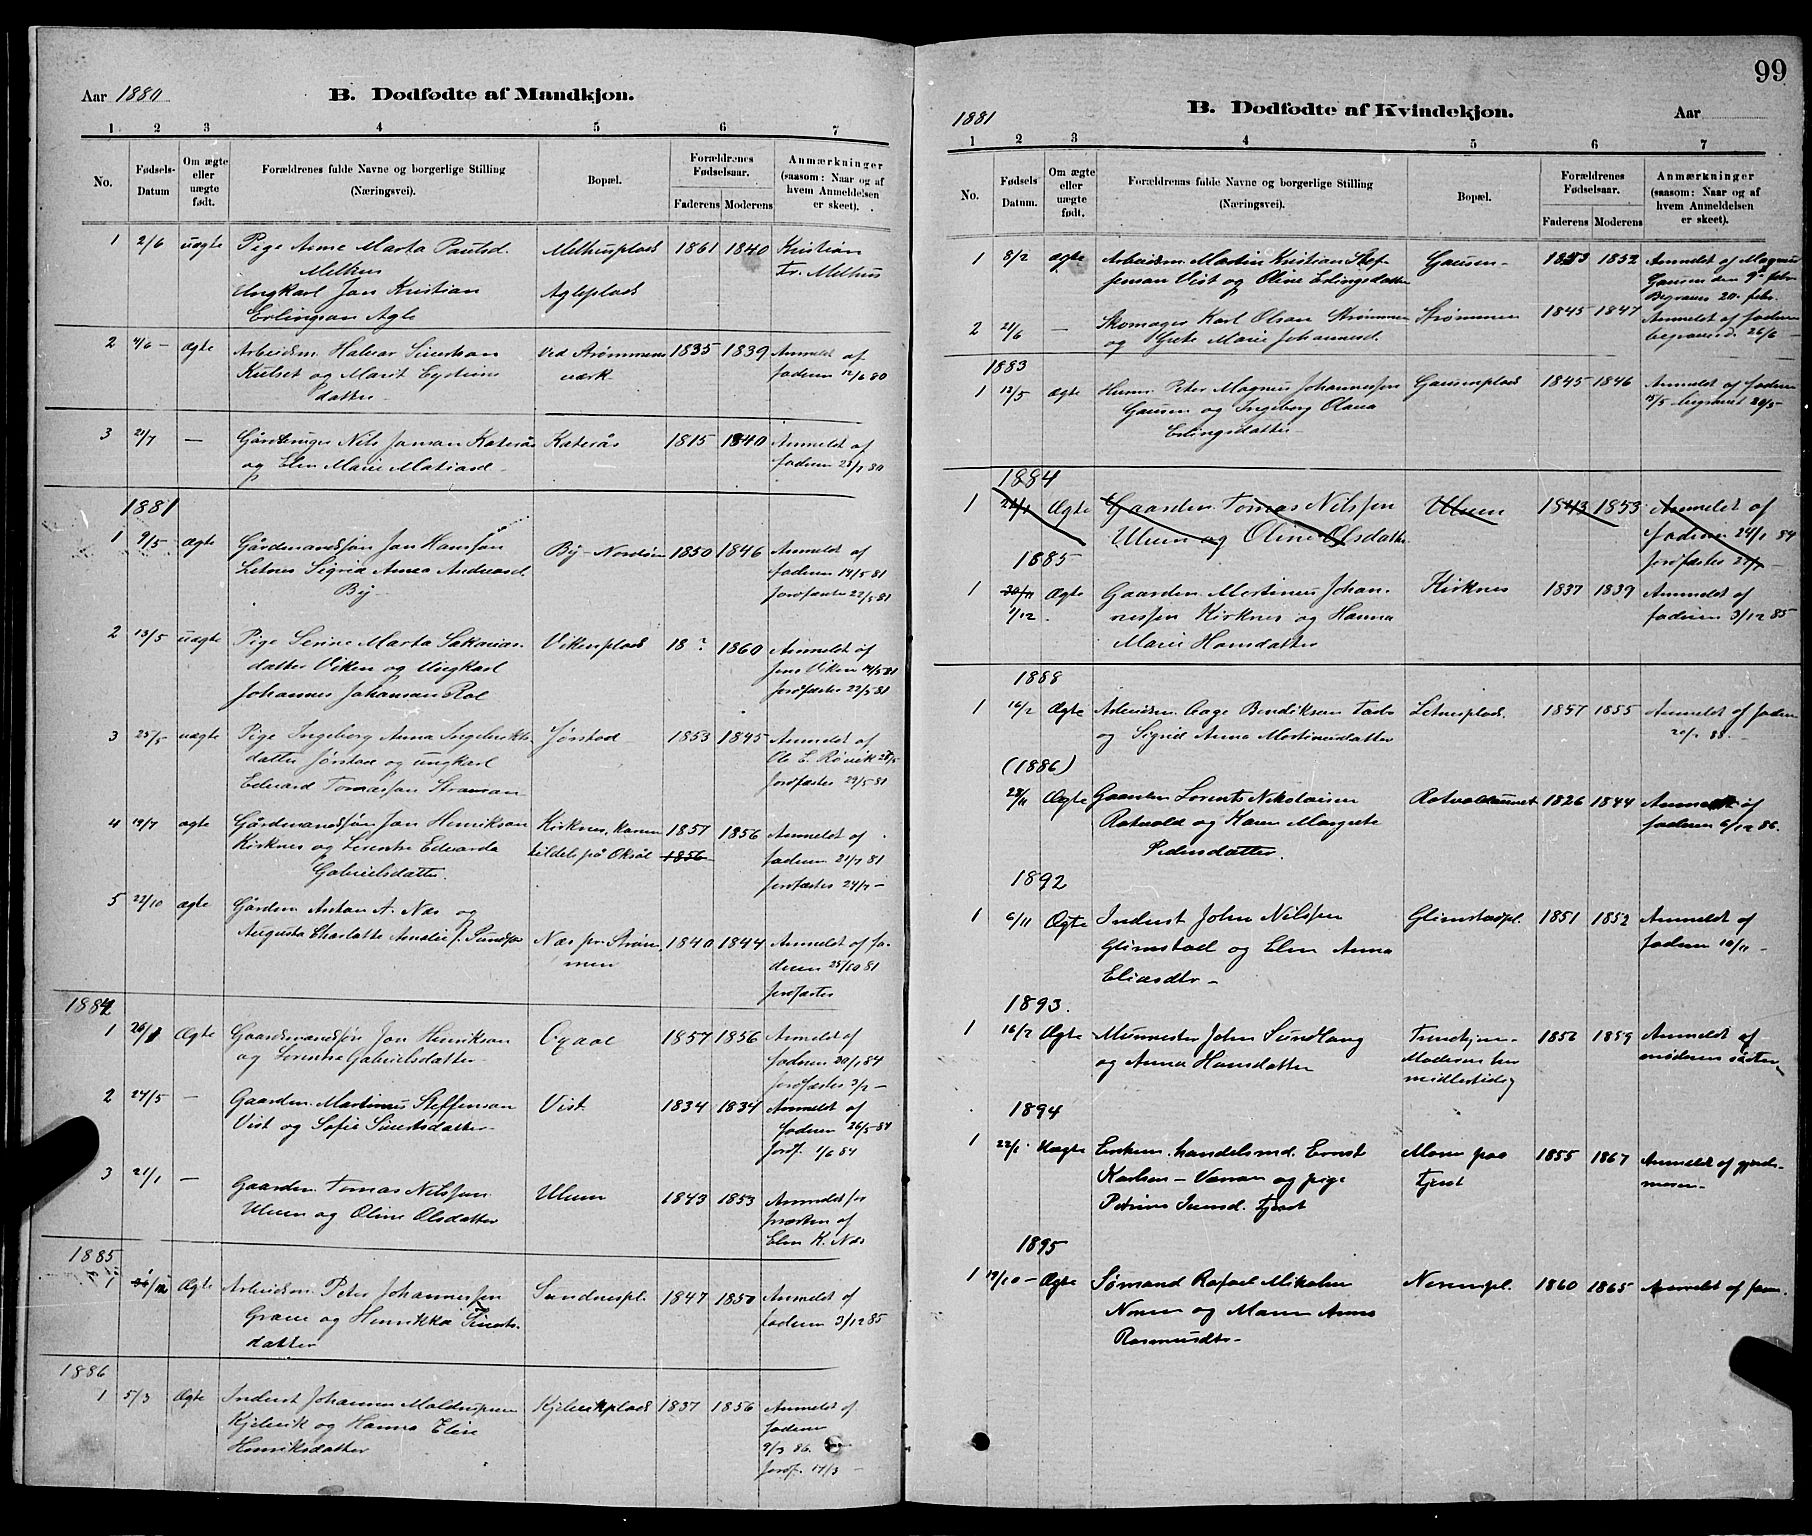 Aar 1880
B. Dødfødte af Mandkjøn.
1 2 3 4 5 6 7
No.
Fødsels-
Datum
Om ægte
eller
uægte
født.
Forældrenes fulde Navne og borgerlige Stilling
(Næringsvei).
Bopæl.
Forældrenes
Fødselsaar.
Faderens Moderens
Anmærkninger
(saasom: Naar og af
hvem Anmeldelsen
er skeet).
1 2/6 uægte Pige Anne Marta Paulsd. Melhusplads 1861 1840 Kristian
Melhus Fr. Melhus
Ungkarl Jon Kristian Agleplads
Erlingson Agle
2 4/6 - ægte Arbeidsm. Halvar Sivertsen ved Strømmens 1835 1839 Anmeldt af
og Marit Eystens værk faderen 12/6 80
datter
3 21/7 — Gårdbruger Nils Jonsen Katerås Katerås 1815 1840 Anmeldt af
og Elen Marie Matiasd. faderen 80
1881
1 9/5 ægte Gårdmandsøn Jon Hansøn By - Nordsien 1850 1846 Anmeldt af
Letnes Sigrid Anna Andreasd. faderen 14/5 81
By jordfæstet 22/5 81
2 13/5 uægte Pige Serine Marta Sakarias Vikenplads 18 ? 1860 Anmeldt af
datter Viken og Ungkarl Jens Viken 14/5 81
Johannes Johansen Rol jordfæstet 22/5 81
3 25/5 uægte Pige Ingeborg Anna Ingebrikts Jørstad 1853 1845 Anmeldt af
datter Jørstad og ungkarl Ole E. Røvik 28/5
Edvard Tomassøn jordfæstet 29/5 81
4 19/7 ægte Gårdmandsøn Jon Henrikson Kirknes, 1857 1856 Anmeldt af
Kirknes og Lorentse Edvarda tildels på Oksål 1856 faderen 21/7 81
Gabrielsdatter. jordfæstet 24/7 —
5 22/10 ægte Gårdm. Anton A. Næs og
Augusta Charlotte Amalie f. Næs pr. Strøm- 1840 1844 Anmeldt af fa-
men deren 25/10 81
jordfæstet
1884
1 26/1 Ægte Gaardmandsøn Jon Henrikson 1857 1856 Anmeldt af
og Lorentse Gabrielsdatter faderen 84
jordfæstet 3/2 —
2 24/5 — Gaardm. Martinus Steffenson Vist 1834 1834 Anmeldt af
Vist og Sofie Sivertsdatter faderen 26/5 84
jordf. 1/6 84
3 21/1 — Gaardm. Tomas Nilssen Ulven 1843 1853 Anmeldt for
Ulven og Oline Olsdatter præsten af
Elen K. Næs
1885
1 Ægte Arbeidsm. Peter Johannessen Sundnespl. 1847 1850 Anmeldt af
og Henrikka Sivertsd- faderen 3/12 85
datter
1886
1 5/3 Ægte Inderst Johannes Kjelvikplads 1837 1856 Anmeldt af
Kjelvik og Hanna Elise faderen
Henriksdatter 9/3 86.
jordf. 14/3 —
99
1881
B. Dødfødte af Kvindekjøn.
Aar
1 2 3 4 5 6 7
No.
Fødsels
Datum.
Om ægte
eller
uægte
født.
Forældrenes fulde Navne og borgerlige Stilling
(Næringsvei).
Bopæl.
Forældrenes
Fødselsaar.
Faderens Moderens
Anmærkninger
(saasom: Naar og af
hvem Anmeldelsen
er skeet).
1 8/2 ægte Arbeidsm. Martin Kristian Stef- Gausen 1853 1852 Anmeldt af Magnus
fensen Vist og Oline Erlingsdatter Gausen den 9de febr.
Begraves 20. febr.
2 21/6 — Skomager Karl Olsen Strømmen Strømmen 1845 1847 Anmeldt af faderen
og Grete Marie Johannesd. begravet 26/6 —
1883
1 12/5 ægte Husm. Peter Magnus Johannessen Gausenplads 1845 1846 Anmeldt af faderen
Gausen og Ingeborg Olava 15/5 begravet 20/5
Erlingsdatter
1884
1 21/1 Ægte Gaardm. Tomas Nilssen Ulven 1843 1853 Anmeldt af
Ulven og Oline Olsdatter faderen 24/1 84
jordfæstet
1885
1 30/11 Ægte Gaardm. Martinus Johan- Kirknes 1837 1839 Anmeldt af
1/12. nessen Kirknes og Hanna faderen 3/12 85
Marie Hansdatter
1888
1 16/2 Ægte Arbeidsm. Aage Bendiksen Letnesplads. 1857 1855 Anmeldt af faderen
og Sigrid Anna Martinusdatter 88.
(1886)
28/11 Ægte Gaardm. Lorents Nikolaisen Rotvoldaunet 1826 1844 Anmeldt af
Rotvold og Karen Margrete faderen 6/12 86.
Pedersdatter.
1892
1 6/11 Ægte Inderst John Nilssen Glimstadpl. 1851 1852 Anmeldt af
Glimstad og Elen Anna faderen 10/11 —
Eliasdtr —
1893.
1 16/2 Ægte Murmester John Sundlang Trondhjem 1856 1859 Anmeldt af
og Anna Hansdatter Moderen her moderens søster
midlertidig
1894
1 22/1 Uægte Enkem. handelsmd. Ernst Moen paa 1855 1867 Anmeldt af gjord-
Karlsen — og pige moren —
Petrine
1895
1 19/10 - Ægte Sømand Rafael Mikalsen 1860 1865 Anmeldt af
og Maren Anna
Rasmusdtr —